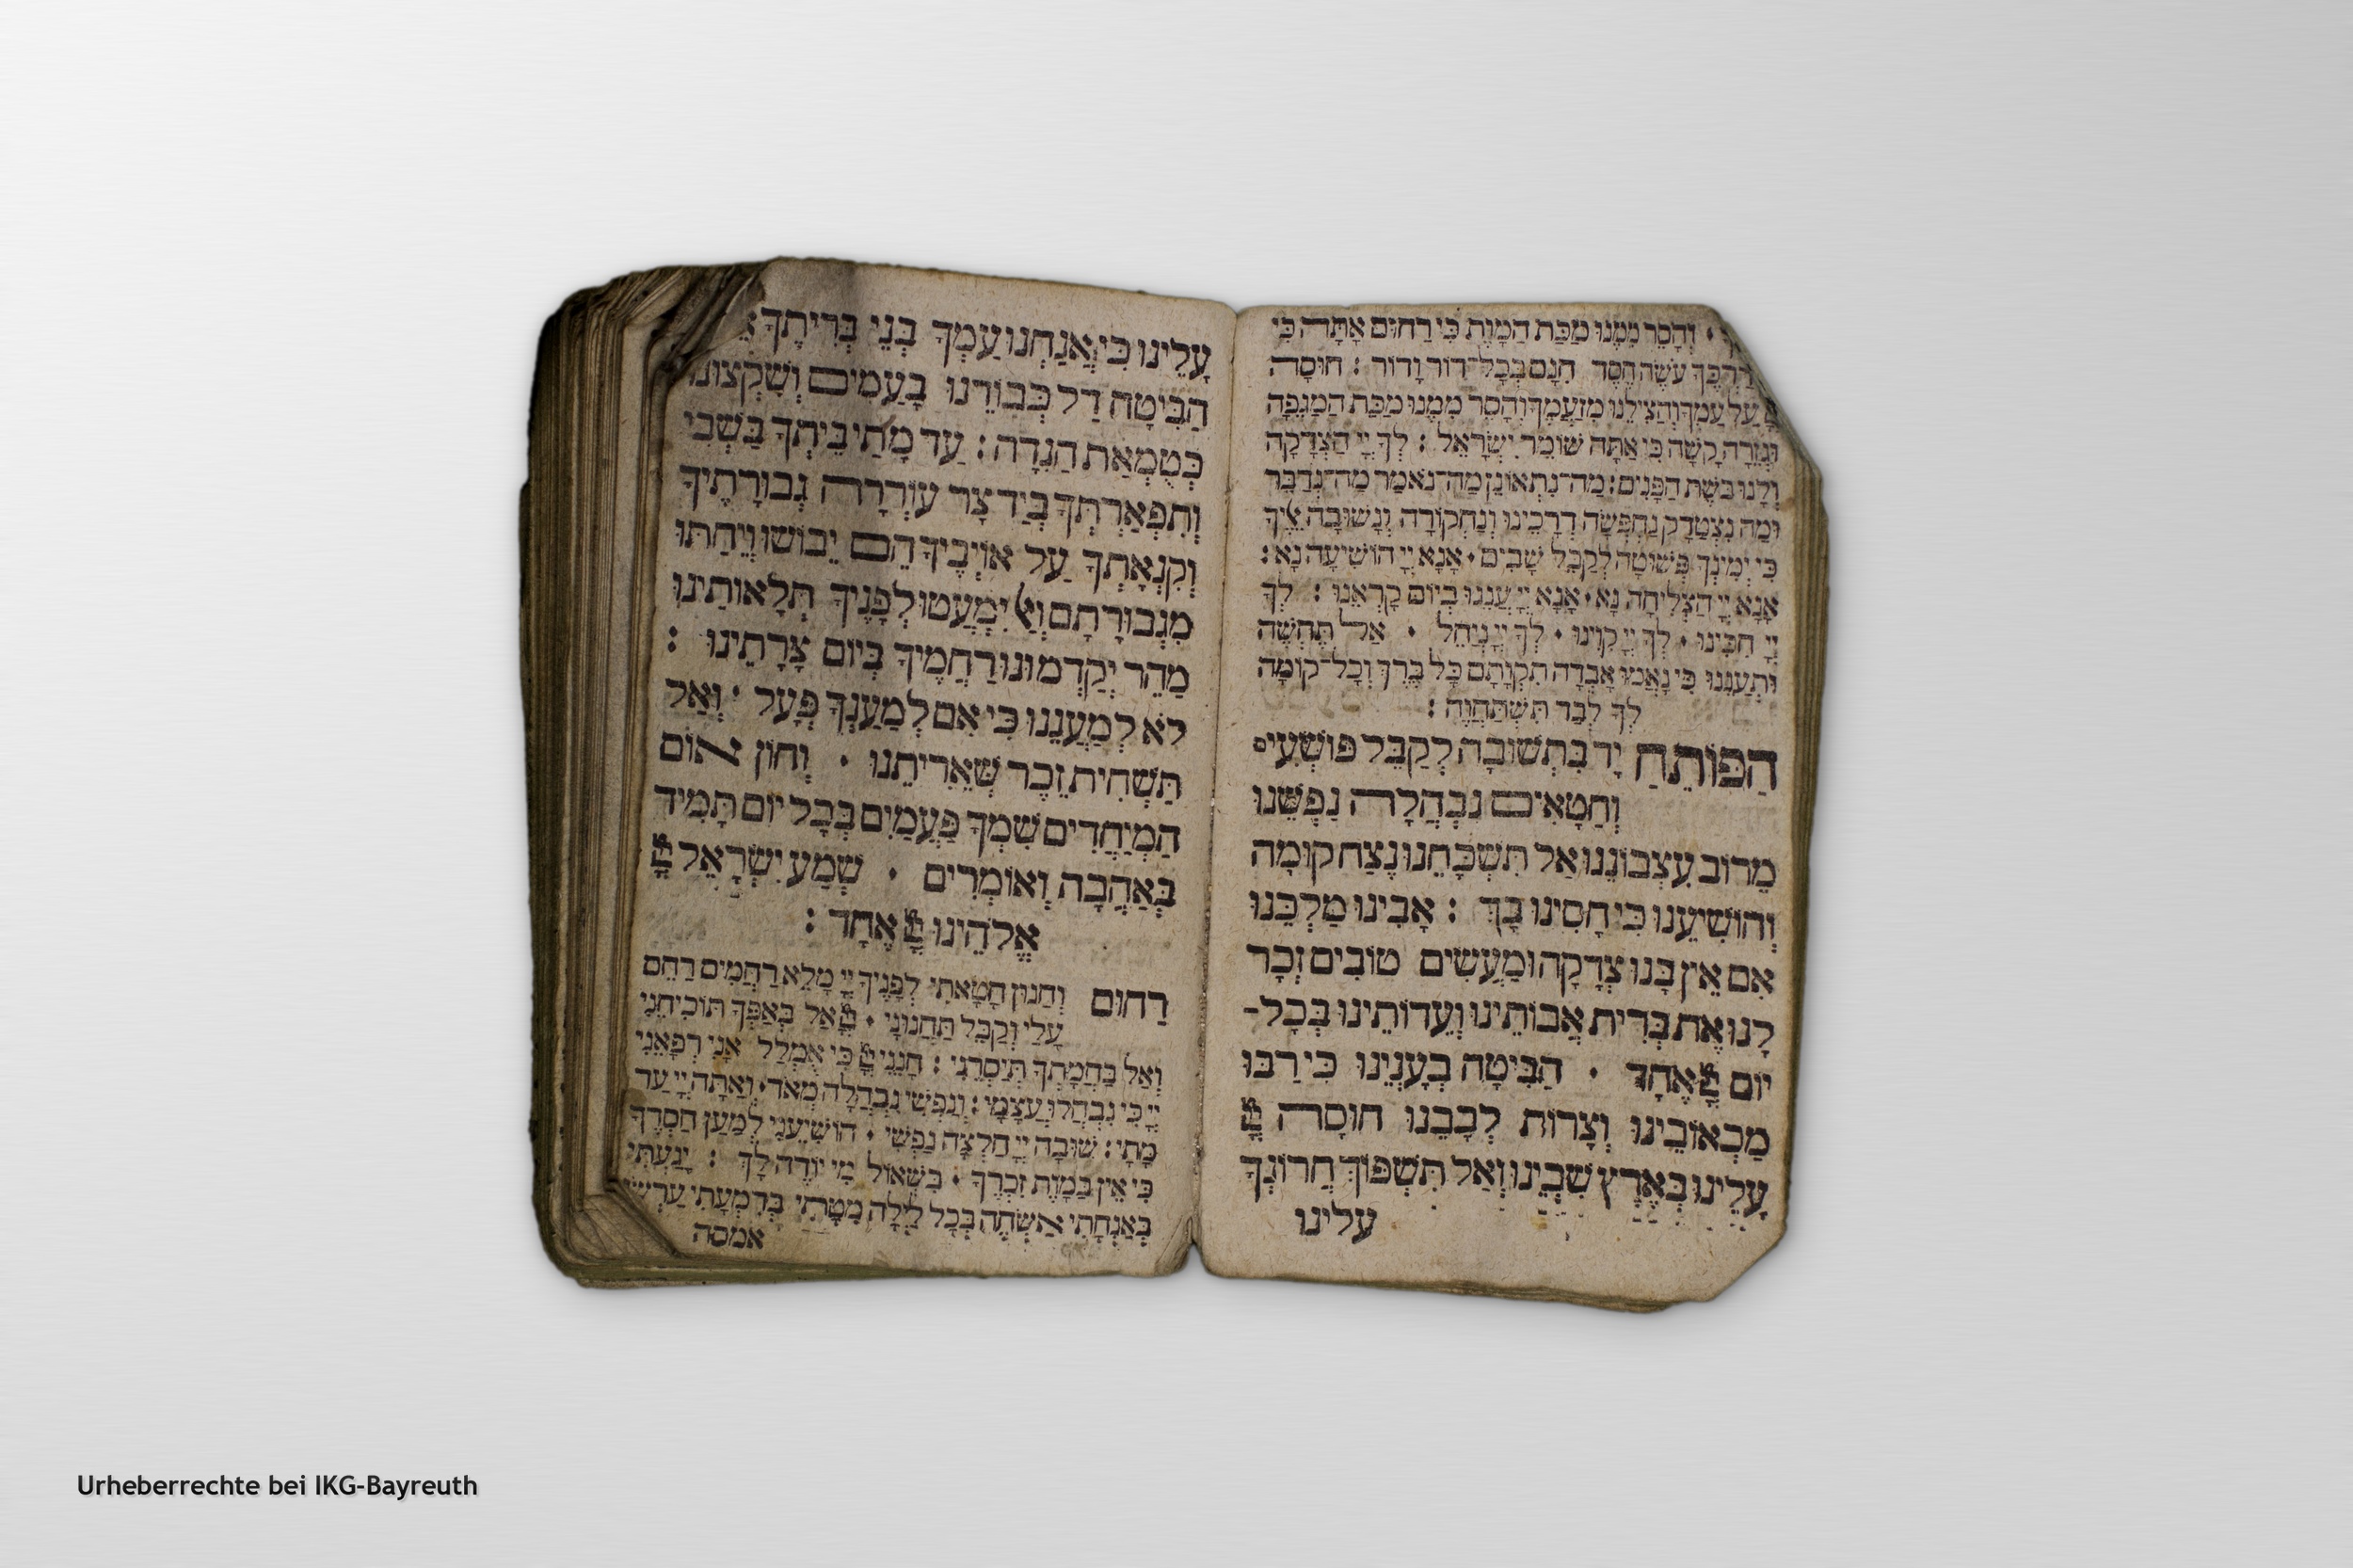 וְהָסֵר מִמֶּנּוּ מַכַּת הַמָּוֶת כִּי רַחוּם אָתָּה כִּי
דַרְכְּךָ עֹשֶׂה חֶסֶד חִנָּם בְּכָל־דּוֹר וָדוֹר : חוּסָה
עַל עַמְּךָ וְהַצִּילֵנוּ מִזַּעְמֶךָ וְהָסֵר מִמֶּנּוּ מַכַּת הַמַּגֵּפָה
וּגְזֵרָה קָשָׁה כִּי אַתָּה שׁוֹמֵר יִשְׂרָאֵל : לְךָ יְיָ הַצְּדָקָה
וְלָנוּ בֹּשֶׁת הַפָּנִים : מַה־נִּתְאוֹנֵן מַה־נֹּאמַר מַה־נְּדַבֵּר
וּמַה נִּצְטַדָּק נַחְפְּשָׂה דְרָכֵינוּ וְנַחְקוֹרָה וְנָשׁוּבָה אֵלֶיךָ
כִּי יְמִינְךָ פְּשׁוּטָה לְקַבֵּל שָׁבִים • אָנָּא יְיָ הוֹשִׁיעָה נָּא :
אָנָּא יְיָ הַצְלִיחָה נָּא • אָנָּא יְיָ עֲנֵנוּ בְיוֹם קָרְאֵנוּ : לְךָ
יְיָ חִכִּינוּ • לְךָ יְיָ קִוִּינוּ • לְךָ יְיָ נְיַחֵל • אַל תֶּחֱשֶׁה
וּתְעַנֵּנוּ כִּי נָאֲמוּ אָבְדָה תִקְוָתָם כָּל בֶּרֶךְ וְכָל־קוֹמָה
לְךָ לְבַד תִּשְׁתַּחֲוֶה :
הַפּוֹתֵחַ יָד בִּתְשׁוּבָה לְקַבֵּל פּוֹשְׁעִים
וְחַטָּאִים נִבְהֲלָה נַפְשֵׁנוּ
מֵרוֹב עִצְּבוֹנֵנוּ אַל תִּשְׁכָּחֵנוּ נֶצַח קוּמָה
וְהוֹשִׁיעֵנוּ כִּי חָסִינוּ בָךְ : אָבִינוּ מַלְכֵּנוּ
אִם אֵין בָּנוּ צְדָקָה וּמַעֲשִׂים טוֹבִים זְכָר
לָנוּ אֶת בְּרִית אֲבוֹתֵינוּ וְעֵדוֹתֵינוּ בְּכָל־
יוֹם יְיָ אֶחָד • הַבִּיטָה בְעָנְיֵנוּ כִּי רַבּוּ
מַכְאוֹבֵינוּ וְצָרוֹת לְבָבֵנוּ חוּסָה יְיָ
עָלֵינוּ בְּאֶרֶץ שִׁבְיֵנוּ וְאַל תִּשְׁפּוֹךְ חֲרוֹנְךָ
עלינו
עָלֵינוּ כִּי אֲנַחְנוּ עַמְּךָ בְּנֵי בְרִיתֶךָ
הַבִּיטָה דַּל כְּבוֹדֵנוּ בָעַמִּים וְשִׁקְּצוּנוּ
כְּטֻמְאַת הַנִּדָּה : עַד מָתַי בֵּיתְךָ בַּשְּׁבִי
וְתִפְאַרְתְּךָ בְּיַד צָר עוֹרְרָה גְבוּרָתֶיךָ
וְקִנְאָתְךָ עַל אוֹיְבֶיךָ הֵם יֵבוֹשׁוּ וְיֵחַתּוּ
מִגְּבוּרָתָם וְאַל יִמְעֲטוּ לְפָנֶיךָ תְּלָאוֹתֵינוּ
מַהֵר יְקַדְּמוּנוּ רַחֲמֶיךָ בְּיוֹם צָרָתֵינוּ :
לֹא לְמַעֲנֵנוּ כִּי אִם לְמַעַנְךָ פְּעָל • וְאַל
תַּשְׁחִית זֵכֶר שְׁאֵרִיתֵנוּ • וְחוֹן אוֹם
הַמְיַחֲדִים שִׁמְךָ פַּעֲמַיִם בְּכָל יוֹם תָּמִיד
בְּאַהֲבָה וְאוֹמְרִים • שְׁמַע יִשְׂרָאֵל יְיָ
אֱלֹהֵינוּ יְיָ אֶחָד :
רַחוּם וְחַנּוּן חָטָאתִי לְפָנֶיךָ יְיָ מָלֵא רַחֲמִים רַחֵם
עָלַי וְקַבֵּל תַּחֲנוּנָי • יְיָ אַל בְּאַפְּךָ תוֹכִיחֵנִי
וְאַל בַּחֲמָתְךָ תְיַסְּרֵנִי : חָנֵּנִי יְיָ כִּי אֻמְלַל אָנִי רְפָאֵנִי
יְיָ כִּי נִבְהֲלוּ עֲצָמָי : וְנַפְשִׁי נִבְהֲלָה מְאֹד • וְאַתָּה יְיָ עַד
מָתָי : שׁוּבָה יְיָ חַלְּצָה נַפְשִׁי • הוֹשִׁיעֵנִי לְמַעַן חַסְדֶּךָ
כִּי אֵין בַּמָּוֶת זִכְרֶךָ • בִּשְׁאוֹל מִי יוֹדֶה לָּךְ : יָגַעְתִּי
בְּאַנְחָתִי אַשְׂחֶה בְּכָל לַיְלָה מִטָּתִי בְּדִמְעָתִי עַרְשִׂי
אמסה
Urheberrechte bei IKG-Bayreuth